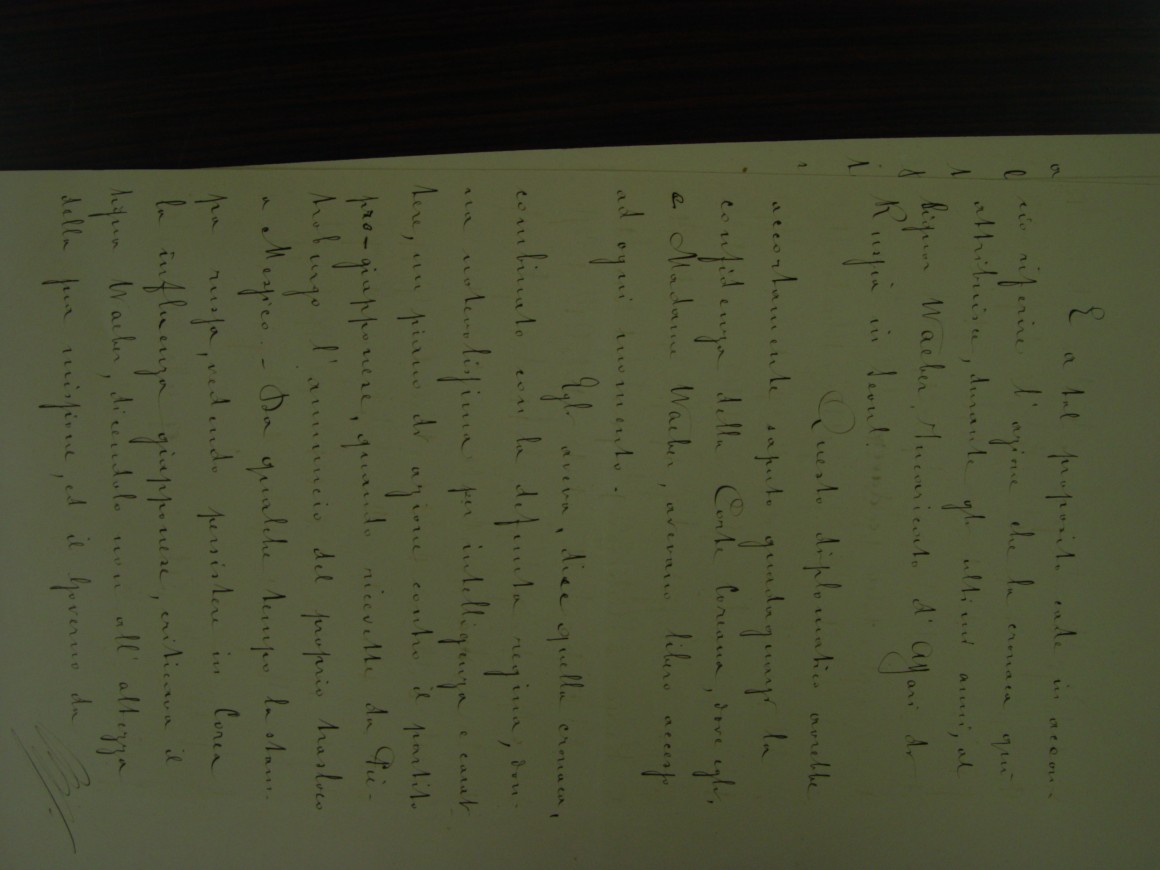 E a tal proposito cade in accon
cio riferire l'azione che la cronaca qui
attribuisce, durante gli ultimi anni, al
Signor Waeber, Incaricato d'Affari di
Russia in Seoul.
Questo diplomatico avrebbe
accortamente saputo guadagnarsi la
confidenza della Corte Coreana, dove egli,
e Madame Waeber, avevano libero accesso
ad ogni momento.
Egli aveva, dice quella cronaca,
combinato con la defunta regina, don-
na notevolissima per intelligenza e carat
tere, un piano di azione contro il partito
pro-giapponese, quando ricevette da Pie-
troburgo l'annuncio del proprio trasloco
a Messico. - Da qualche tempo la stam-
pa russa, vedendo persistere in Corea
la influenza giapponese, criticava il
Signor Waeber, dicendolo non all'altezza
della sua missione, ed il Governo da